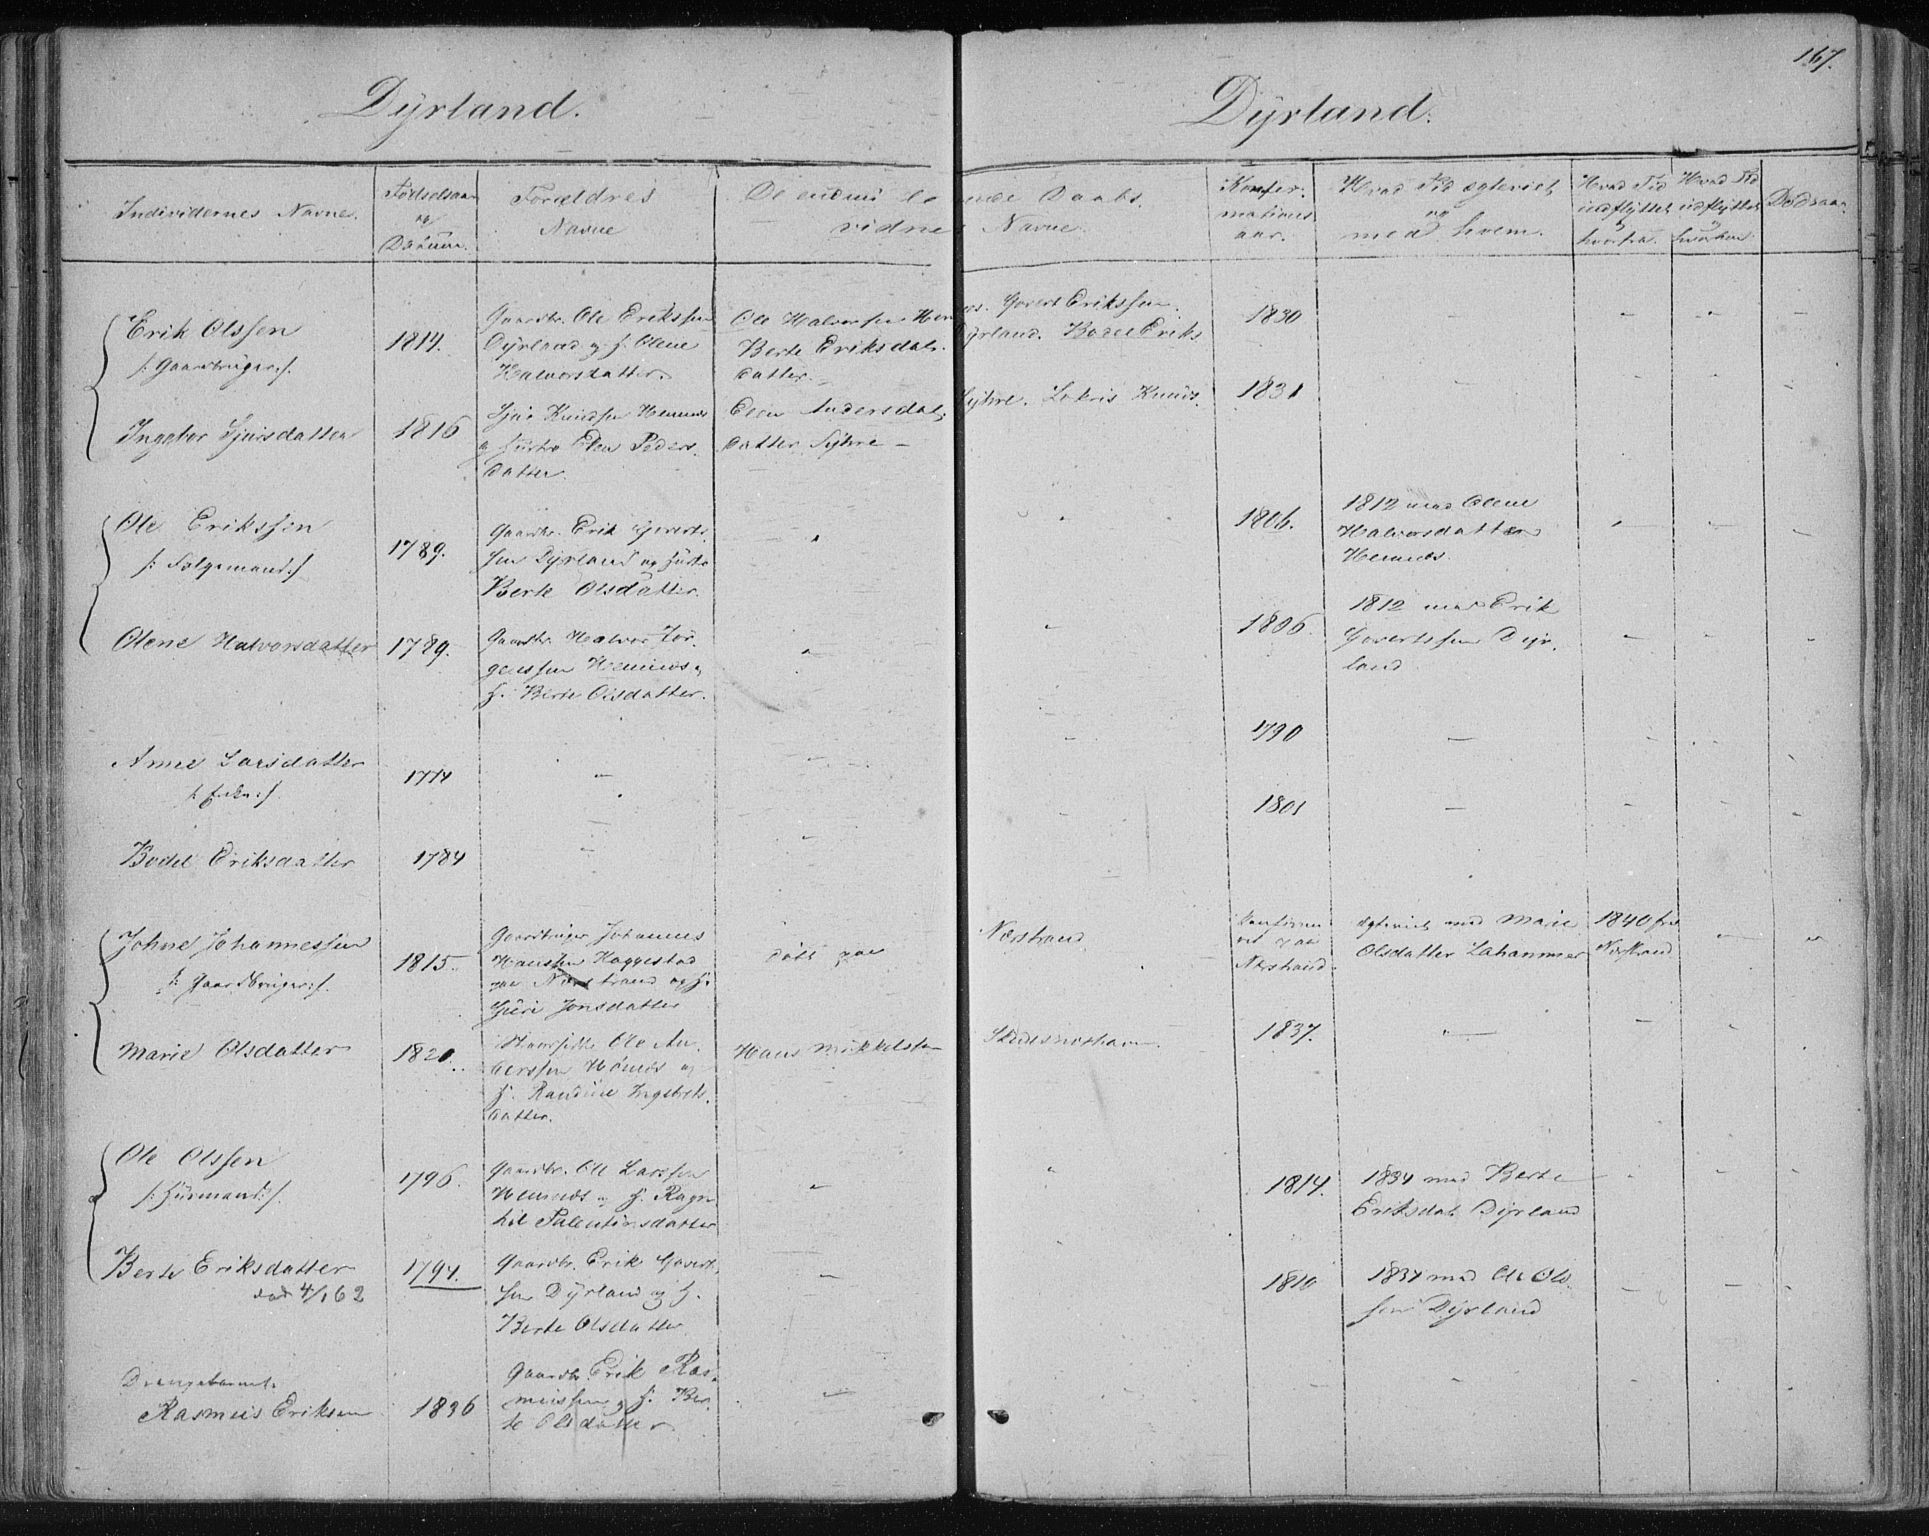 167.
Dyrland. Dyrland.
Individernes Navne.
Fødselsaar
og
Datum.
Forældres
Navne
De endnu levende Daabs
vidners Navne.
Konfir-
mations
aar.
Hvad Tid ægteviet
og
med hvem.
Hvad Tid
indflyttet
og
hvorfra.
Hvad Tid
udflyttet
og
hvorhen
Dødsaar
Erik Olssen
/: Gaardbruger :/.
1814.
Gaardbr. Ole Erikssen
Dyrland og H. Olene
Halvorsdatter.
Ole Halvorssen Govert Erikssen.
Berte Eriksdatr. Dyrland. Bodel Eriks
datter.
1830
Ingebor Sjursdatter
1816
Sjur Knudsen
og Hustro Elen Peders
datter.
Elen Andersdatr. Knuds
datter
1831
Ole Erikssen
/: Følgemand :/
1789.
Gaardbr. Erik Goverts
sen Dyrland og Hustro
Berte Olsdatter.
1806.
1812 med Olene
Halvorsdatter
Olene Halvorsdatter
1789.
Gaardbr. Halvor Tor
genssen og
H. Berte Olsdatter.
1806.
1812 med Erik
Govertssen Dyr
land.
Anne Larsdatter
/: Enke :/
1774
1790
Bodel Eriksdatter
1784
1801
Johne Johannessen
/: Gaardbruger :/.
1815.
Gaardbruger Johannes
Hanssen Haggestad
paa Nærstrand og H.
Guri Jonsdatter
døbt paa Nærstrand
Konfirme
ret paa
Nærstrand.
ægteviet med Marie
Olsdatter Lahammer
1840 fra
Nærstrand
Marie Olsdatter
1821.
Ole An
derssen og
H. Randine Ingebrets
datter.
Hans Mikkelssen
1837.
Ole Olssen
/: Husmand :/.
1796.
Gaardbr. Ole Larssen
og H. Ragn
hil Valentinsdatter
1814.
1834 med Berte
Eriksdatr. Dyrland
Berte Eriksdatter
død 4/1 62
1794.
Gaardbr. Erik Govert
sen Dyrland og H.
Berte Olsdatter
1810
1834 med Ole Ols
sen Dyrland
Drengebarnet
Rasmus Eriksen
1836
Gaardbr. Erik Ras
mussen og H. Ber
te Olsdatter